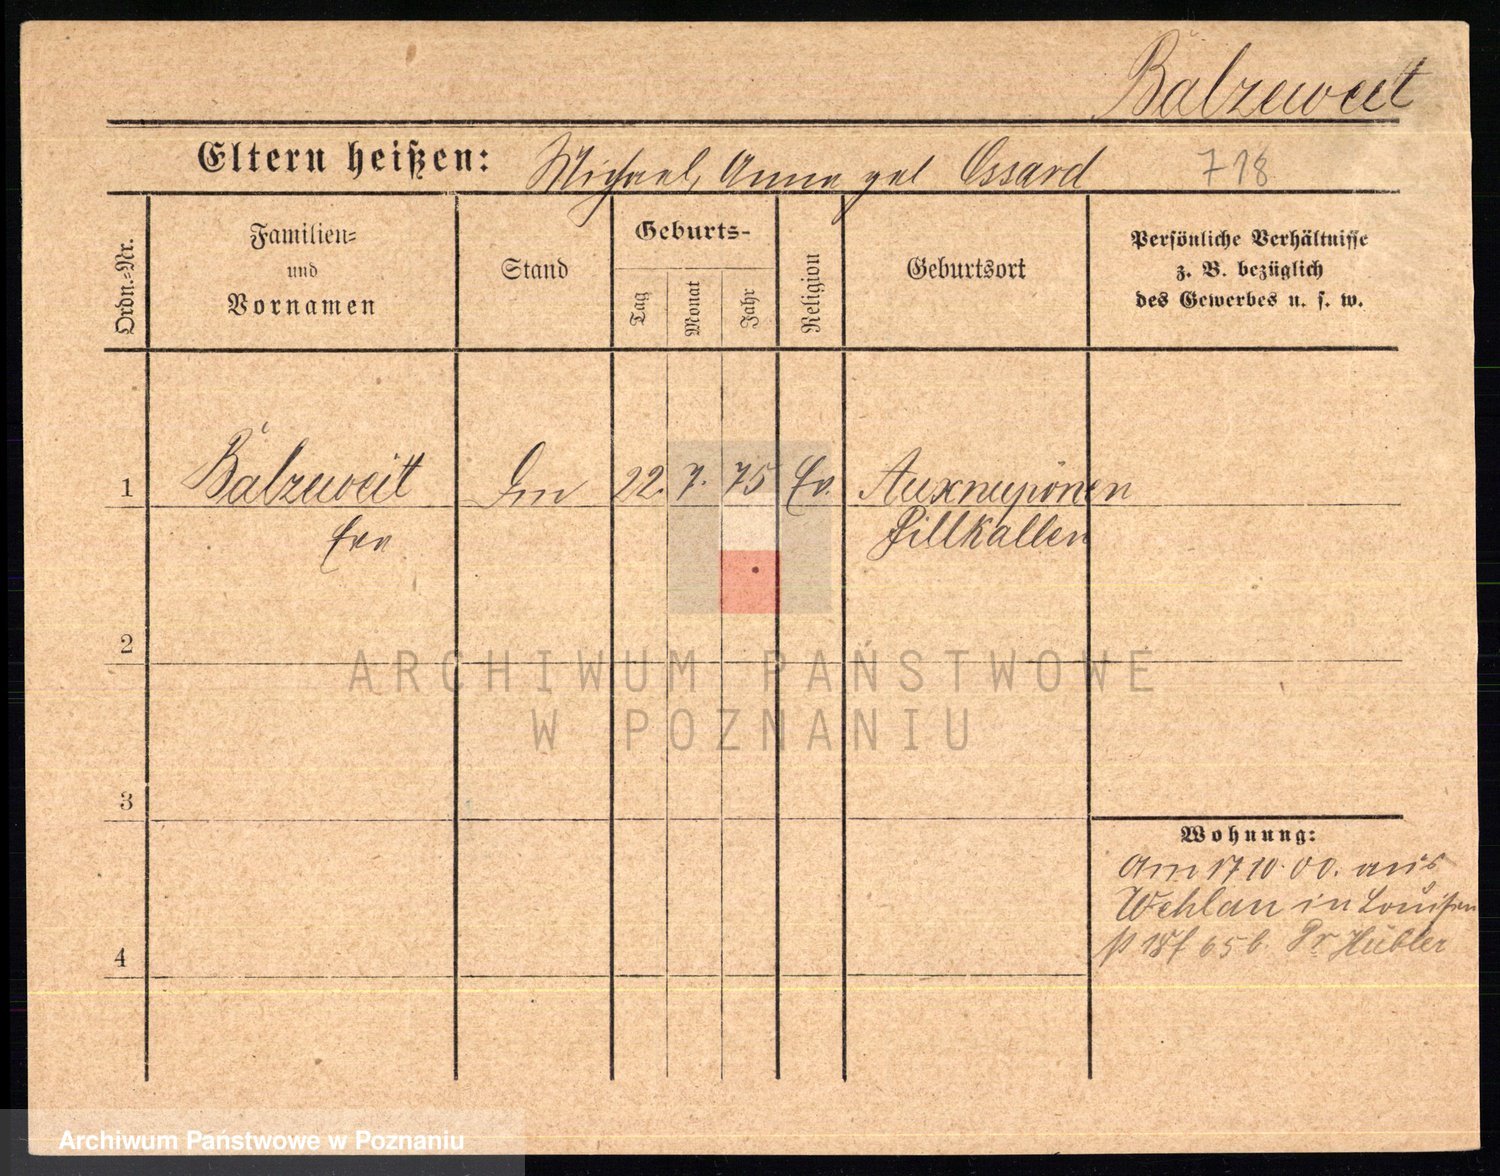 Bälzeweit
Eltern heißen: Michael, Anna geb Ossard 718
Ordn.=Nr.
Familien=
und
Vornamen
Stand
Geburts-
Tag
Monat
Jahr
Religion
Geburtsort
Persönliche Verhältnisse
z. B. bezüglich
des Gewerbes u. s. w.
1 Bälzeweit 22. 7. 75 Ev.
Pillkallen
2
ARCHIWUM PAŃSTWOWE
W POZNANIU
3
Wohnung:
Am 17 10. 00. aus
Wehlau in Louisen
65 b. Hübler
4
Archiwum Państwowe w Poznaniu